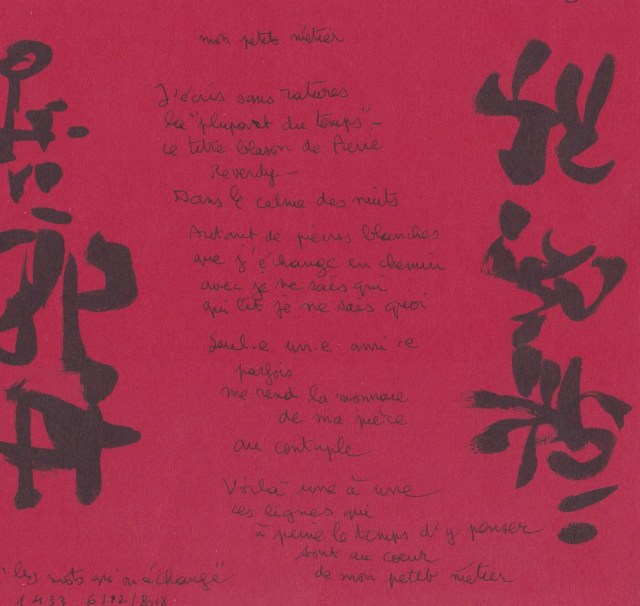 mon petit métier
J'écris sans ratures
la "plupart du temps" –
ce titre blason de Pierre
Reverdy –
Dans le calme des nuits
Autant de pierres blanches
que j'échange en chemin
avec je ne sais qui
qui lit je ne sais quoi
Seul.e un.e ami.e
parfois
me rend la monnaie
de ma pièce
au centuple
Voilà une à une
ces lignes qui
à peine le temps d'y penser
sont au coeur
de mon petit métier
"les mots qu'on échange"
1433